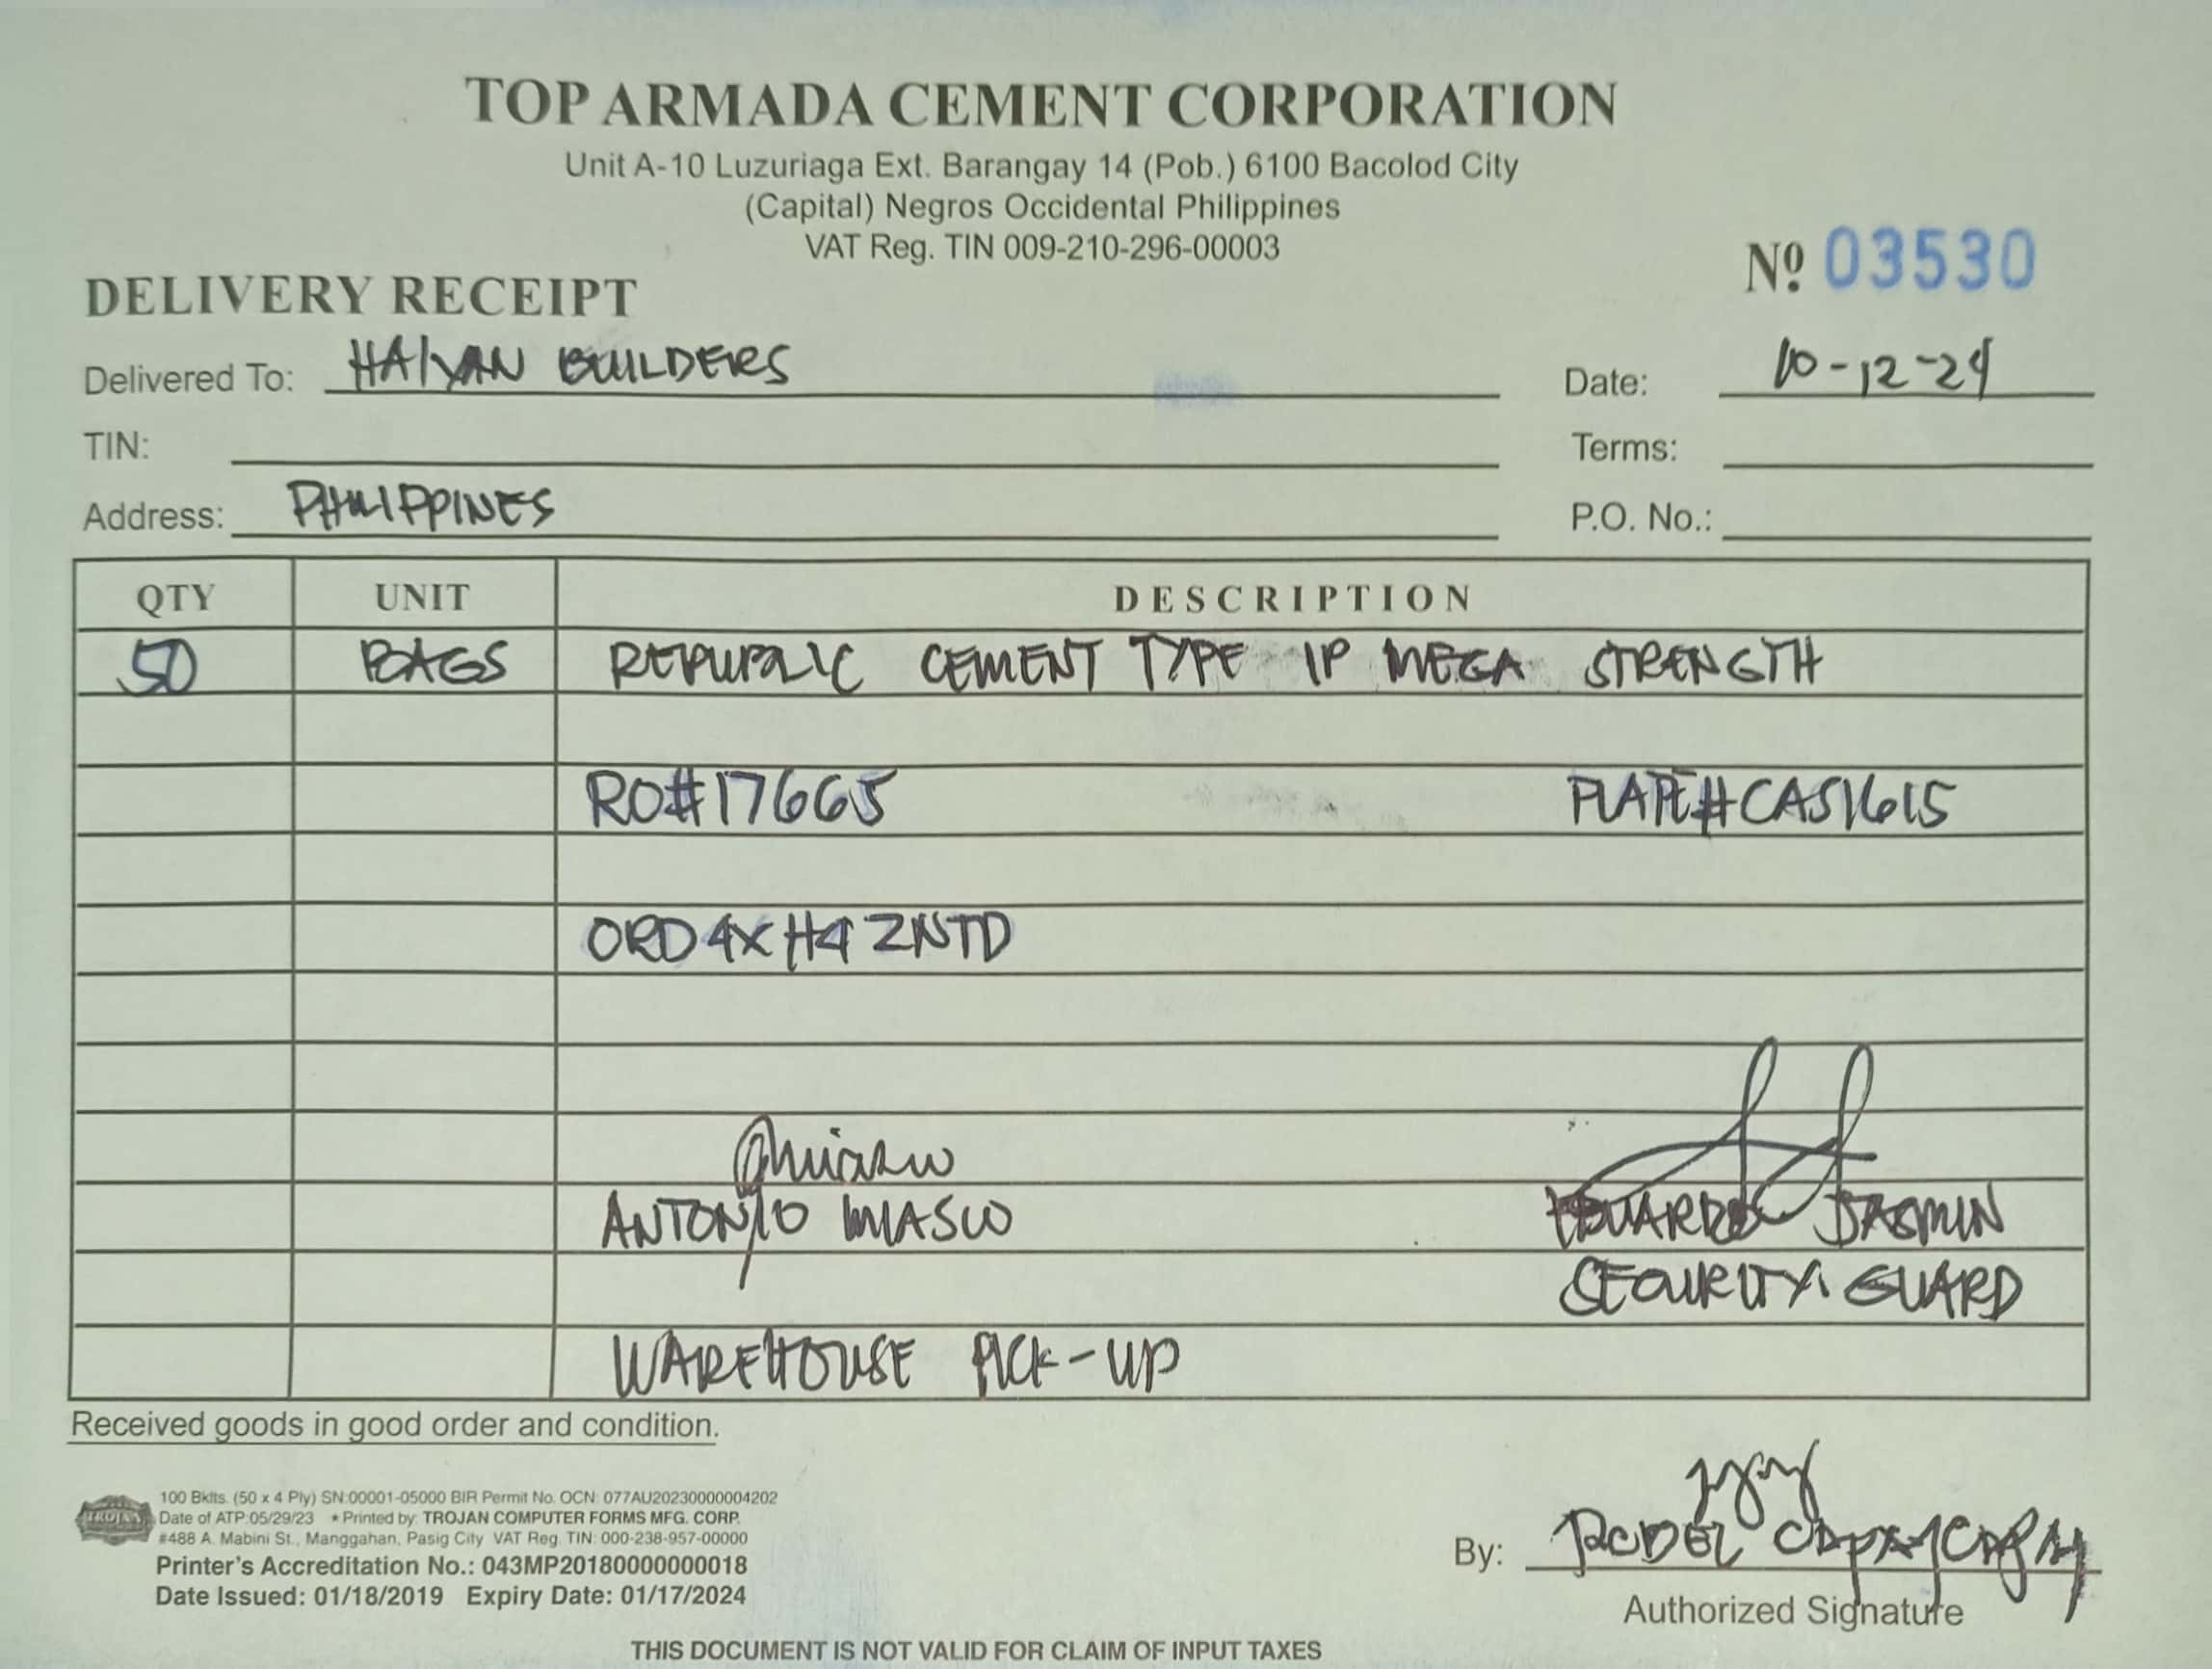 TOP ARMADA CEMENT CORPORATION
Unit A-10 Luzuriaga Ext. Barangay 14 (Pob.) 6100 Bacolod City
(Capital) Negros Occidental Philippines
VAT Reg. TIN 009-210-296-00003
Nº 03530
DELIVERY RECEIPT
Delivered To: HAIYAN BUILDERS Date: 10-12-24
TIN: Terms:
Address: PHILIPPINES P.O. No.:
QTY UNIT DESCRIPTION
50 BAGS REPUBLIC CEMENT TYPE 1P MEGA STRENGTH
RO#17665 PLATE#CAS1615
ORD4XH4ZNTD
ANTONIO EDUARDO JASMIN
SECURITY GUARD
WAREHOUSE PICK-UP
Received goods in good order and condition.
TROJAN
100 Bklts. (50 x 4 Ply) SN:00001-05000 BIR Permit No. OCN: 077AU20230000004202
Date of ATP:05/29/23 • Printed by: TROJAN COMPUTER FORMS MFG. CORP.
#488 A. Mabini St., Manggahan, Pasig City VAT Reg. TIN: 000-238-957-00000
Printer's Accreditation No.: 043MP20180000000018
Date Issued: 01/18/2019 Expiry Date: 01/17/2024
By: RODEL
Authorized Signature
THIS DOCUMENT IS NOT VALID FOR CLAIM OF INPUT TAXES